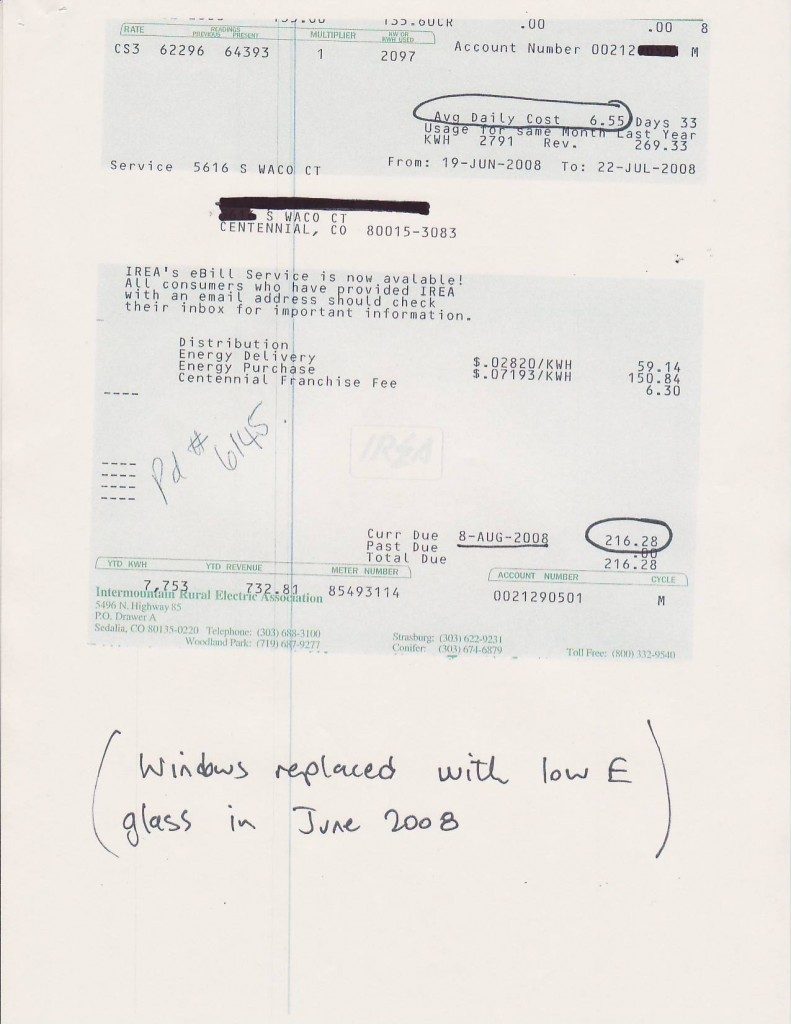 135.60CR .00 .00 8
RATE READINGS PREVIOUS PRESENT MULTIPLIER KW OR KWH USED
CS3 62296 64393 1 2097 Account Number 00212 M
Avg Daily Cost 6.55 Days 33
Usage for same Month Last Year
KWH 2791 Rev. 269.33
Service 5616 S WACO CT From: 19-JUN-2008 To: 22-JUL-2008
S WACO CT
CENTENNIAL, CO 80015-3083
IREA's eBill Service is now avalable!
All consumers who have provided IREA
with an email address should check
their inbox for important information.
Distribution
Energy Delivery $.02820/KWH 59.14
Energy Purchase $.07193/KWH 150.84
Centennial Franchise Fee 6.30
Pd # 6145
IREA
Curr Due 8-AUG-2008 216.28
Past Due .00
Total Due 216.28
YTD KWH YTD REVENUE METER NUMBER ACCOUNT NUMBER CYCLE
7,753 732.81 85493114 0021290501 M
Intermountain Rural Electric Association
5496 N. Highway 85
P.O. Drawer A
Sedalia, CO 80135-0220 Telephone: (303) 688-3100 Strasburg: (303) 622-9231
Woodland Park: (719) 687-9277 Conifer: (303) 674-6879 Toll Free: (800) 332-9540
(Windows replaced with low E
glass in June 2008)